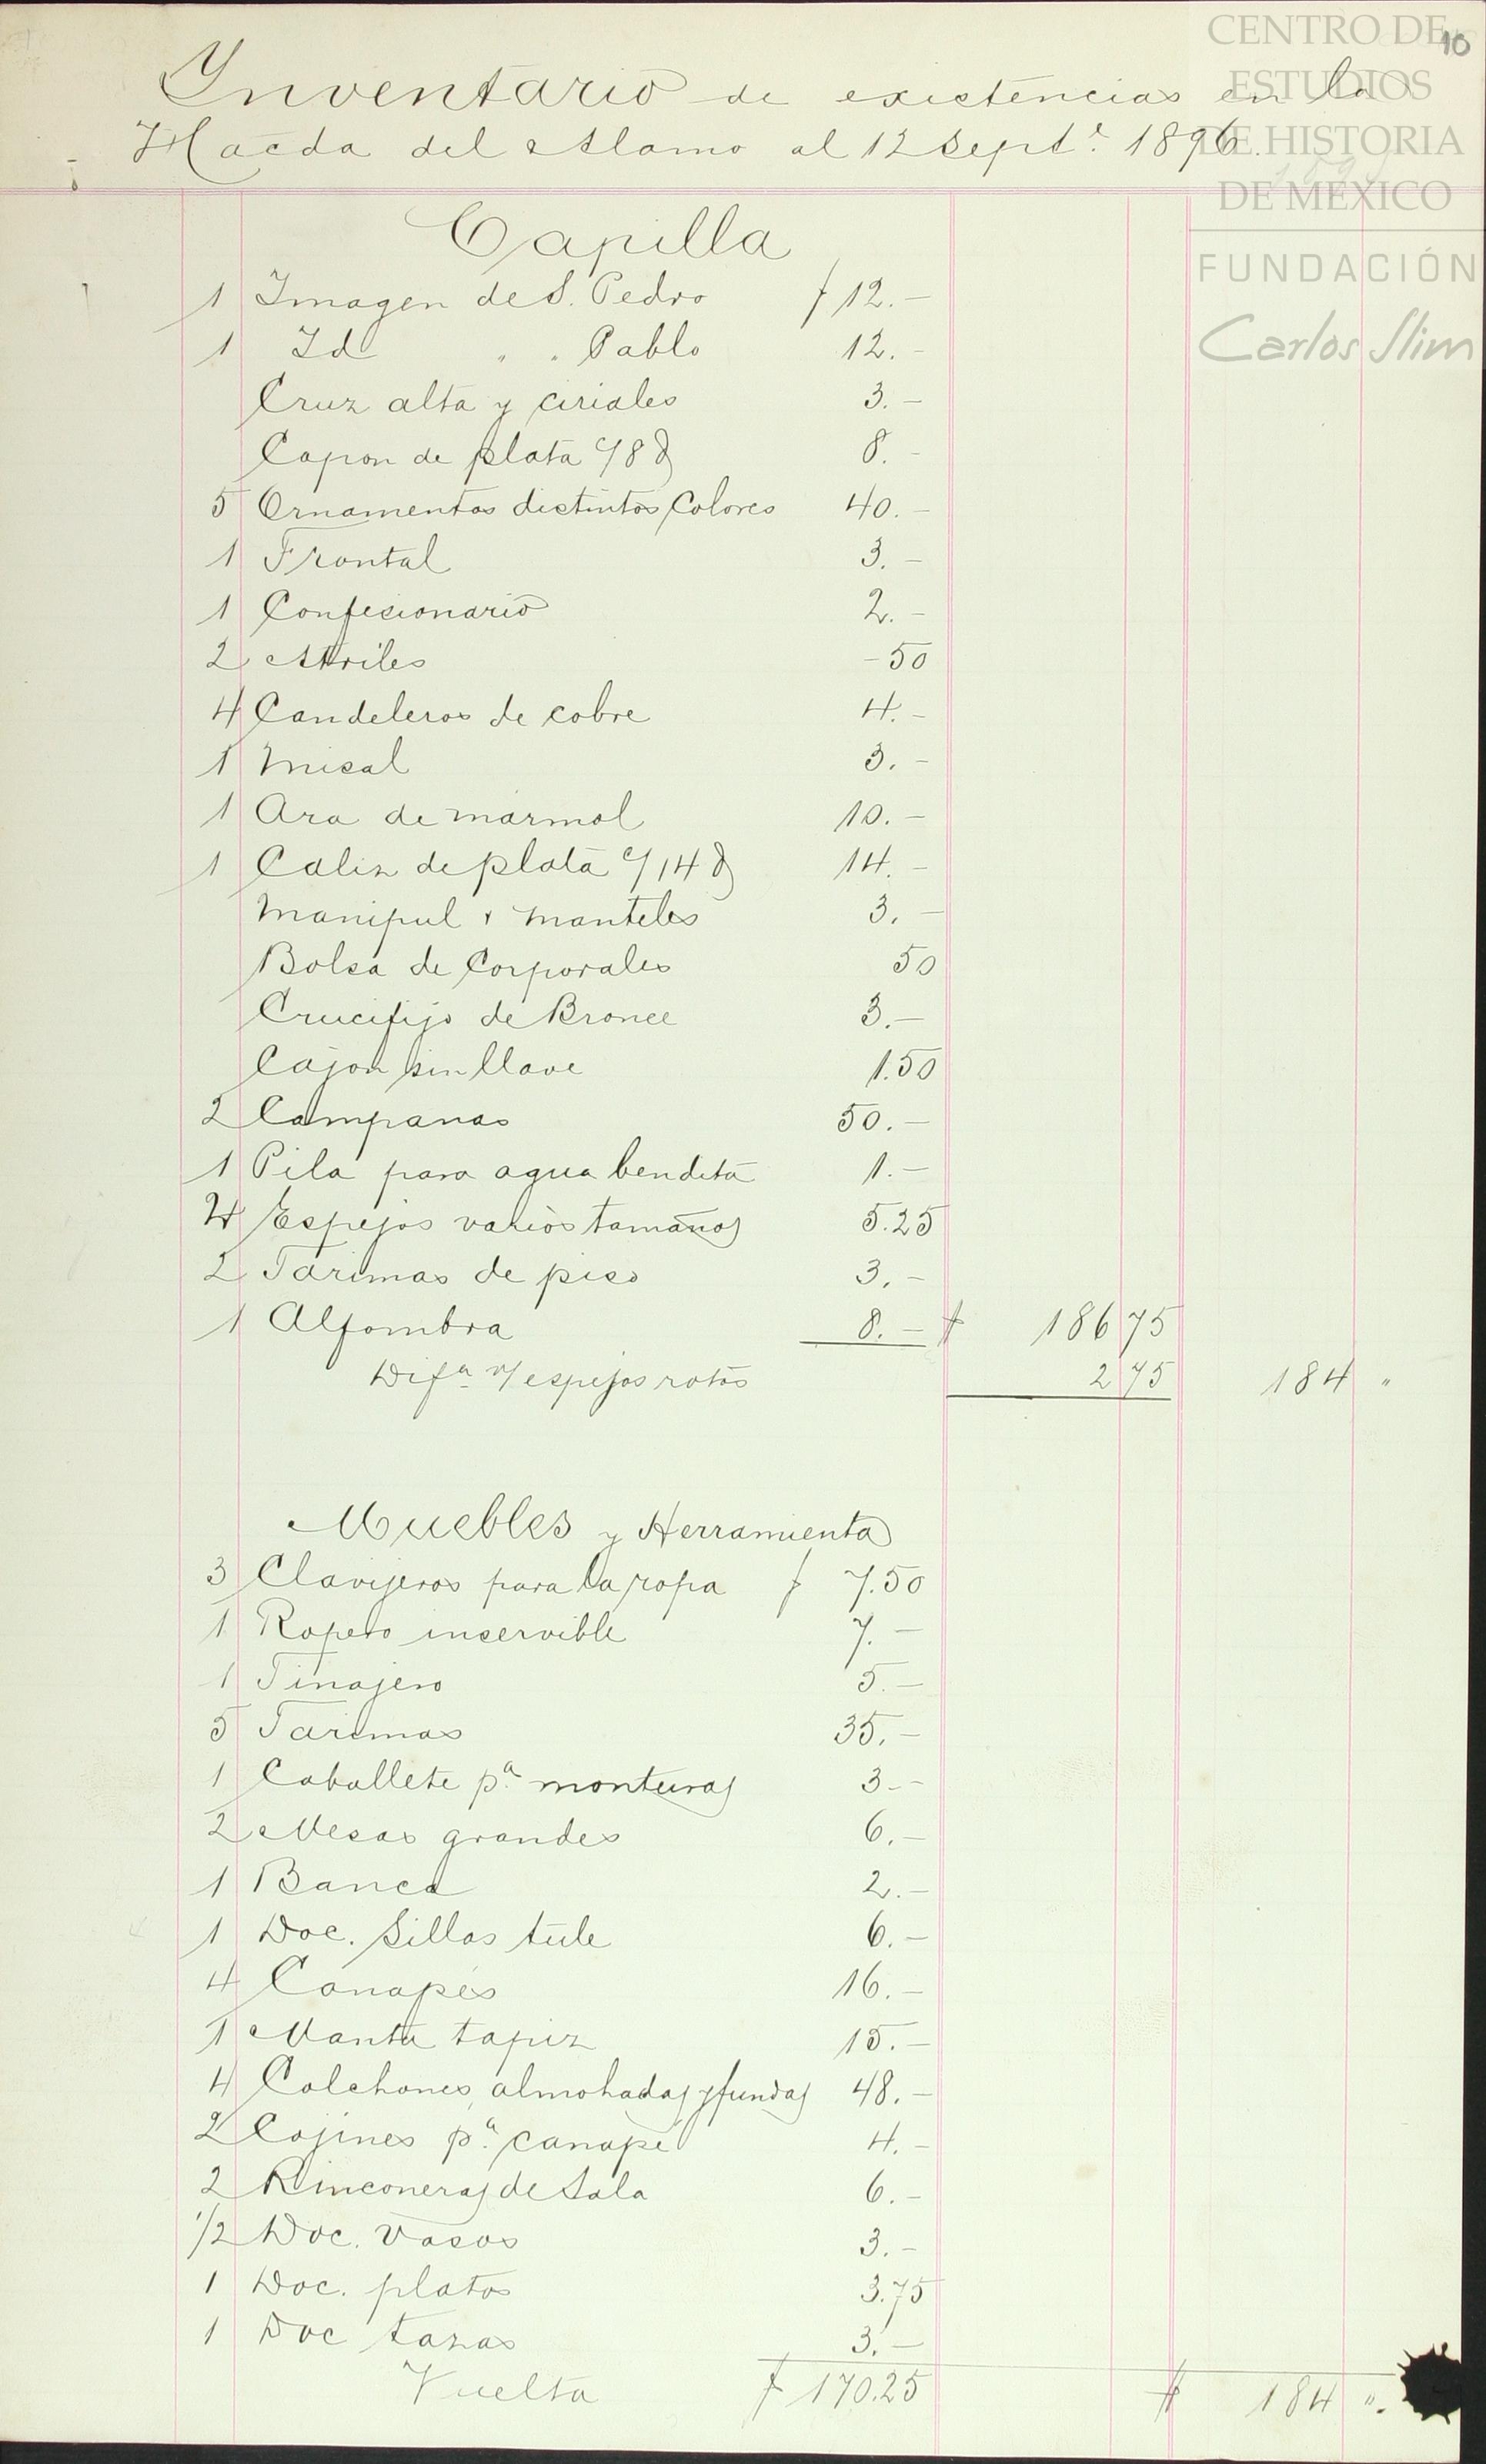 CENTRO DE
ESTUDIOS
DE HISTORIA
DE MÉXICO
FUNDACIÓN
Carlos Slim
10
Inventario de existencias en la
Hacda del Alamo al 12 Septe. 1896.
Capilla
1 Imagen de S. Pedro $ 12.—
1 Id " " Pablo 12.—
Cruz alta y ciriales 3.—
Copon de plata c/ 8 8.—
5 Ornamentos distintos Colores 40.—
1 Frontal 3.—
1 Confecionario 2.—
2 Atriles —50
4 Candeleros de cobre 4.—
1 Misal 3.—
1 Ara de marmol 10.—
1 Caliz de plata c/ 14 14.—
Manipul y Manteles 3.—
Bolsa de Corporales 50
Crucifijo de Bronce 3.—
Cajon sin llave 1.50
2 Campanas 50.—
1 Pila para agua bendita 1.—
4 Espejos varios tamaños 5.25
2 Tarimas de piso 3.—
1 Alfombra 8.— $ 186 75
Difa. espejos rotos 2 75 184 "
Muebles y Herramienta
3 Clavijeros para la ropa $ 7.50
1 Ropero inservible 7.—
1 Tinajero 5.—
5 Tarimas 35.—
1 Caballete pa. monturas 3—
2 Mesas grandes 6.—
1 Banca 2.—
1 Doc. Sillas tule 6.—
4 Canapés 16.—
1 Manta tapiz 15.—
4 Colchones, almohadas y fundas 48.—
2 Cojines pa. canapé 4.—
2 Rinconeras de Sala 6.—
1/2 Doc. Vasos 3.—
1 Doc. platos 3.75
1 Doc tazas 3.—
Vuelta $ 170.25 $ 184 ".